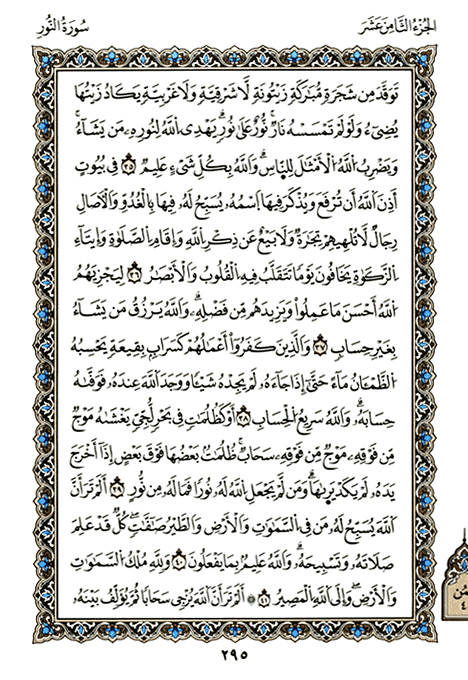 الجُزْءُ الثَّامِنَ عَشَرَ
سُورَةُ النُّورِ
تَوَقَّدَ مِن شَجَرَةٍ مُّبَٰرَكَةٍ زَيْتُونَةٍ لَّا شَرْقِيَّةٍ وَلَا غَرْبِيَّةٍ يَكَادُ زَيْتُهَا
يُضِيٓءُ وَلَوْ لَمْ تَمْسَسْهُ نَارٌۚ نُّورٌ عَلَىٰ نُورٍۚ يَهْدِي اللَّهُ لِنُورِهِۦ مَن يَشَآءُۚ
وَيَضْرِبُ اللَّهُ الْأَمْثَٰلَ لِلنَّاسِۗ وَاللَّهُ بِكُلِّ شَيْءٍ عَلِيمٌ ٣٥ فِي بُيُوتٍ
أَذِنَ اللَّهُ أَن تُرْفَعَ وَيُذْكَرَ فِيهَا اسْمُهُۥ يُسَبِّحُ لَهُۥ فِيهَا بِالْغُدُوِّ وَالْأٓصَالِ
رِجَالٌ لَّا تُلْهِيهِمْ تِجَٰرَةٌ وَلَا بَيْعٌ عَن ذِكْرِ اللَّهِ وَإِقَامِ الصَّلَوٰةِ وَإِيتَآءِ
الزَّكَوٰةِ يَخَافُونَ يَوْمًا تَتَقَلَّبُ فِيهِ الْقُلُوبُ وَالْأَبْصَٰرُ ٣٦ لِيَجْزِيَهُمُ
اللَّهُ أَحْسَنَ مَا عَمِلُواْ وَيَزِيدَهُم مِّن فَضْلِهِۦۗ وَاللَّهُ يَرْزُقُ مَن يَشَآءُ
بِغَيْرِ حِسَابٍ ٣٧ وَالَّذِينَ كَفَرُوٓاْ أَعْمَٰلُهُمْ كَسَرَابٍ بِقِيعَةٍ يَحْسِبُهُ
الظَّمْـَٔانُ مَآءً حَتَّىٰٓ إِذَا جَآءَهُۥ لَمْ يَجِدْهُ شَيْـًٔا وَوَجَدَ اللَّهَ عِندَهُۥ فَوَفَّىٰهُ
حِسَابَهُۥۗ وَاللَّهُ سَرِيعُ الْحِسَابِ ٣٨ أَوْ كَظُلُمَٰتٍ فِي بَحْرٍ لُّجِّيٍّ يَغْشَىٰهُ مَوْجٌ
مِّن فَوْقِهِۦ مَوْجٌ مِّن فَوْقِهِۦ سَحَابٌۚ ظُلُمَٰتٌۢ بَعْضُهَا فَوْقَ بَعْضٍ إِذَآ أَخْرَجَ
يَدَهُۥ لَمْ يَكَدْ يَرَىٰهَاۗ وَمَن لَّمْ يَجْعَلِ اللَّهُ لَهُۥ نُورًا فَمَا لَهُۥ مِن نُّورٍ ٣٩ أَلَمْ تَرَ أَنَّ
اللَّهَ يُسَبِّحُ لَهُۥ مَن فِي السَّمَٰوَٰتِ وَالْأَرْضِ وَالطَّيْرُ صَٰٓفَّٰتٍۖ كُلٌّ قَدْ عَلِمَ
صَلَاتَهُۥ وَتَسْبِيحَهُۥۗ وَاللَّهُ عَلِيمٌۢ بِمَا يَفْعَلُونَ ٤٠ وَلِلَّهِ مُلْكُ السَّمَٰوَٰتِ
وَالْأَرْضِۖ وَإِلَى اللَّهِ الْمَصِيرُ ٤١ ۞ أَلَمْ تَرَ أَنَّ اللَّهَ يُزْجِي سَحَابًا ثُمَّ يُؤَلِّفُ بَيْنَهُۥ
٢٩٥